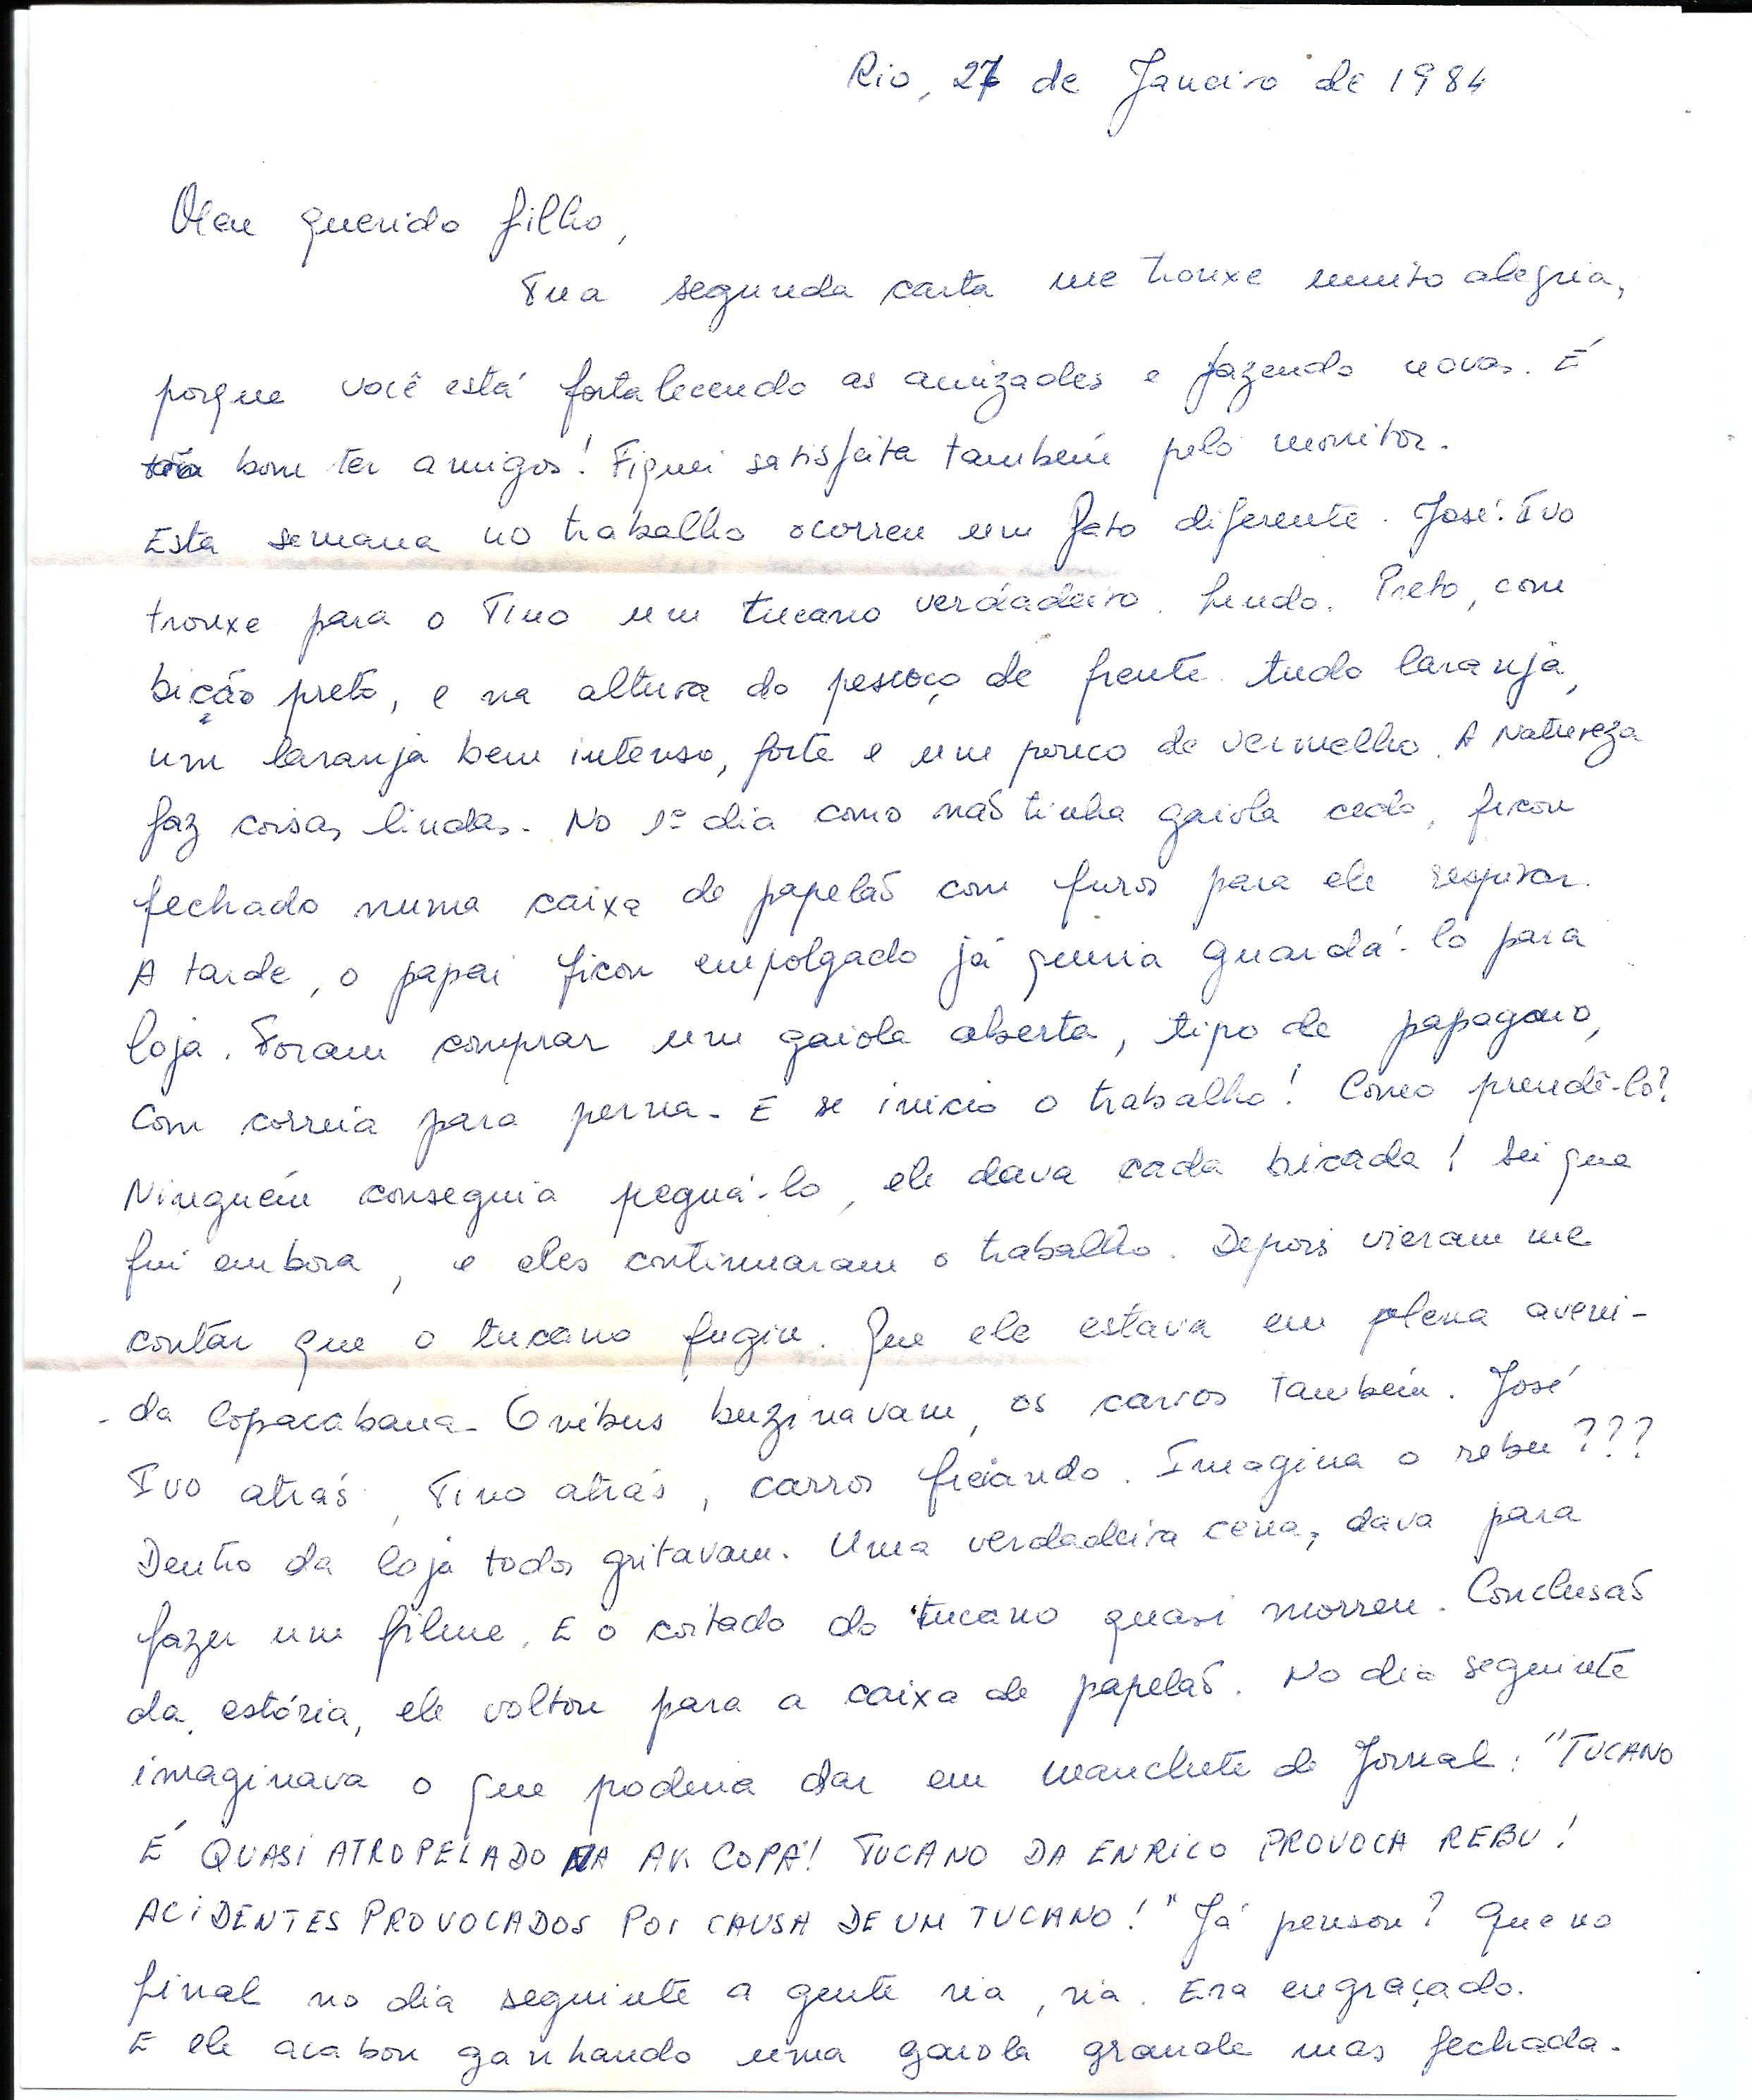 Rio, 27 de Janeiro de 1984
Meu querido filho,
Tua segunda carta me trouxe muito alegria,
porque você está fortalecendo as amizades e fazendo novas. É
bom ter amigos! Fiquei satisfeita também pelo monitor.
Esta semana no trabalho ocorreu um fato diferente. José Ivo
trouxe para o Tino um tucano verdadeiro. Lindo. Preto, com
bicão preto, e na altura do pescoço de frente tudo laranja,
um laranja bem intenso, forte e um pouco de vermelho. A Natureza
faz coisas lindas. No 1º dia como não tinha gaiola cedo, ficou
fechado numa caixa de papelão com furos para ele respirar.
A tarde, o papai ficou empolgado já queria guardá-lo para
loja. Foram comprar um gaiola aberta, tipo de papagaio,
com correia para perna. E se inicio o trabalho! Como prendê-lo?
Ninguém conseguia peguá-lo, ele dava cada bicada! Sei que
fui embora, e eles continuaram o trabalho. Depois vieram me
contar que o tucano fugiu. Que ele estava em plena aveni-
da Copacabana. Ônibus buzinavam, os carros também. José
Ivo atrás, Tino atrás, carros freiando. Imagina o rebu???
Dentro da loja todos gritavam. Uma verdadeira cena, dava para
fazer um filme. E o coitado do tucano quasi morreu. Conclusão
da estória, ele voltou para a caixa de papelão. No dia seguinte
imaginava o que poderia dar em manchete de Jornal: "TUCANO
É QUASI ATROPELADO NA AV. COPA! TUCANO DA ENRICO PROVOCA REBU!
ACIDENTES PROVOCADOS POR CAUSA DE UM TUCANO!" Já pensou? Que no
final no dia seguinte a gente ria, ria. Era engraçado.
E ele acabou ganhando uma gaiola grande mas fechada.